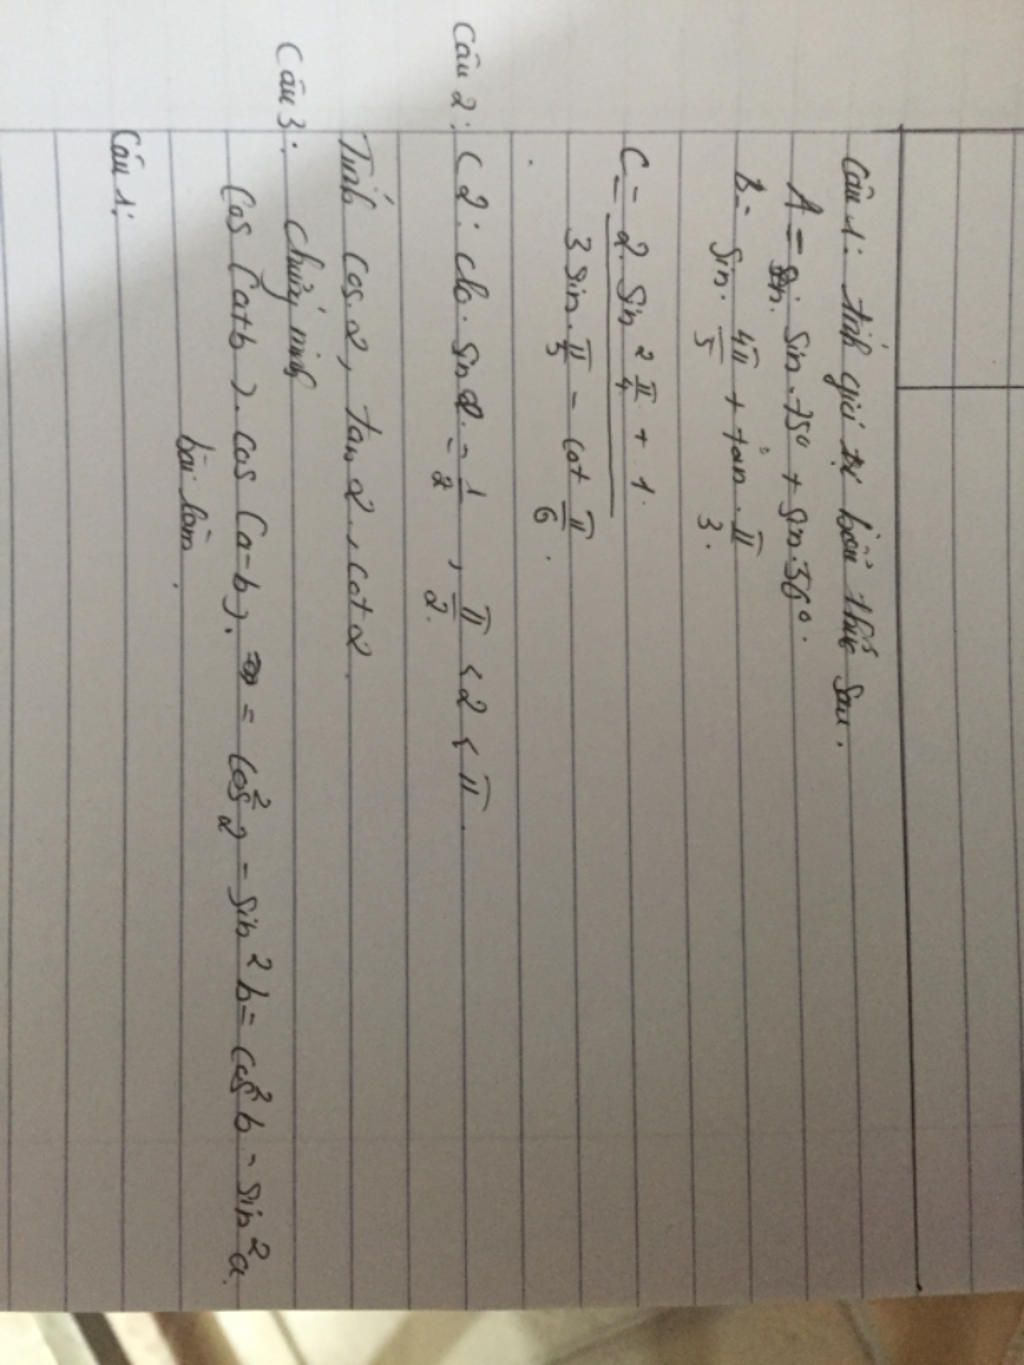 Câu 1: tính giá trị biểu thức sau.
A = sin. sin. 75° + sin. 36°.
B = sin. 4π/5 + tan. π/3.
C = (2. sin² π/4 + 1.) / (3 sin. π/3 - cot π/6.)
Câu 2: C2: cho. sin α. = 1/2, π/2. < 2 < π.
Tính cos. α, tan α., cot α.
Câu 3: chứng minh
Cos (a+b). cos (a-b). = cos² 2 - sin² b = cos² b - sin² a.
bài làm.
Câu 1: